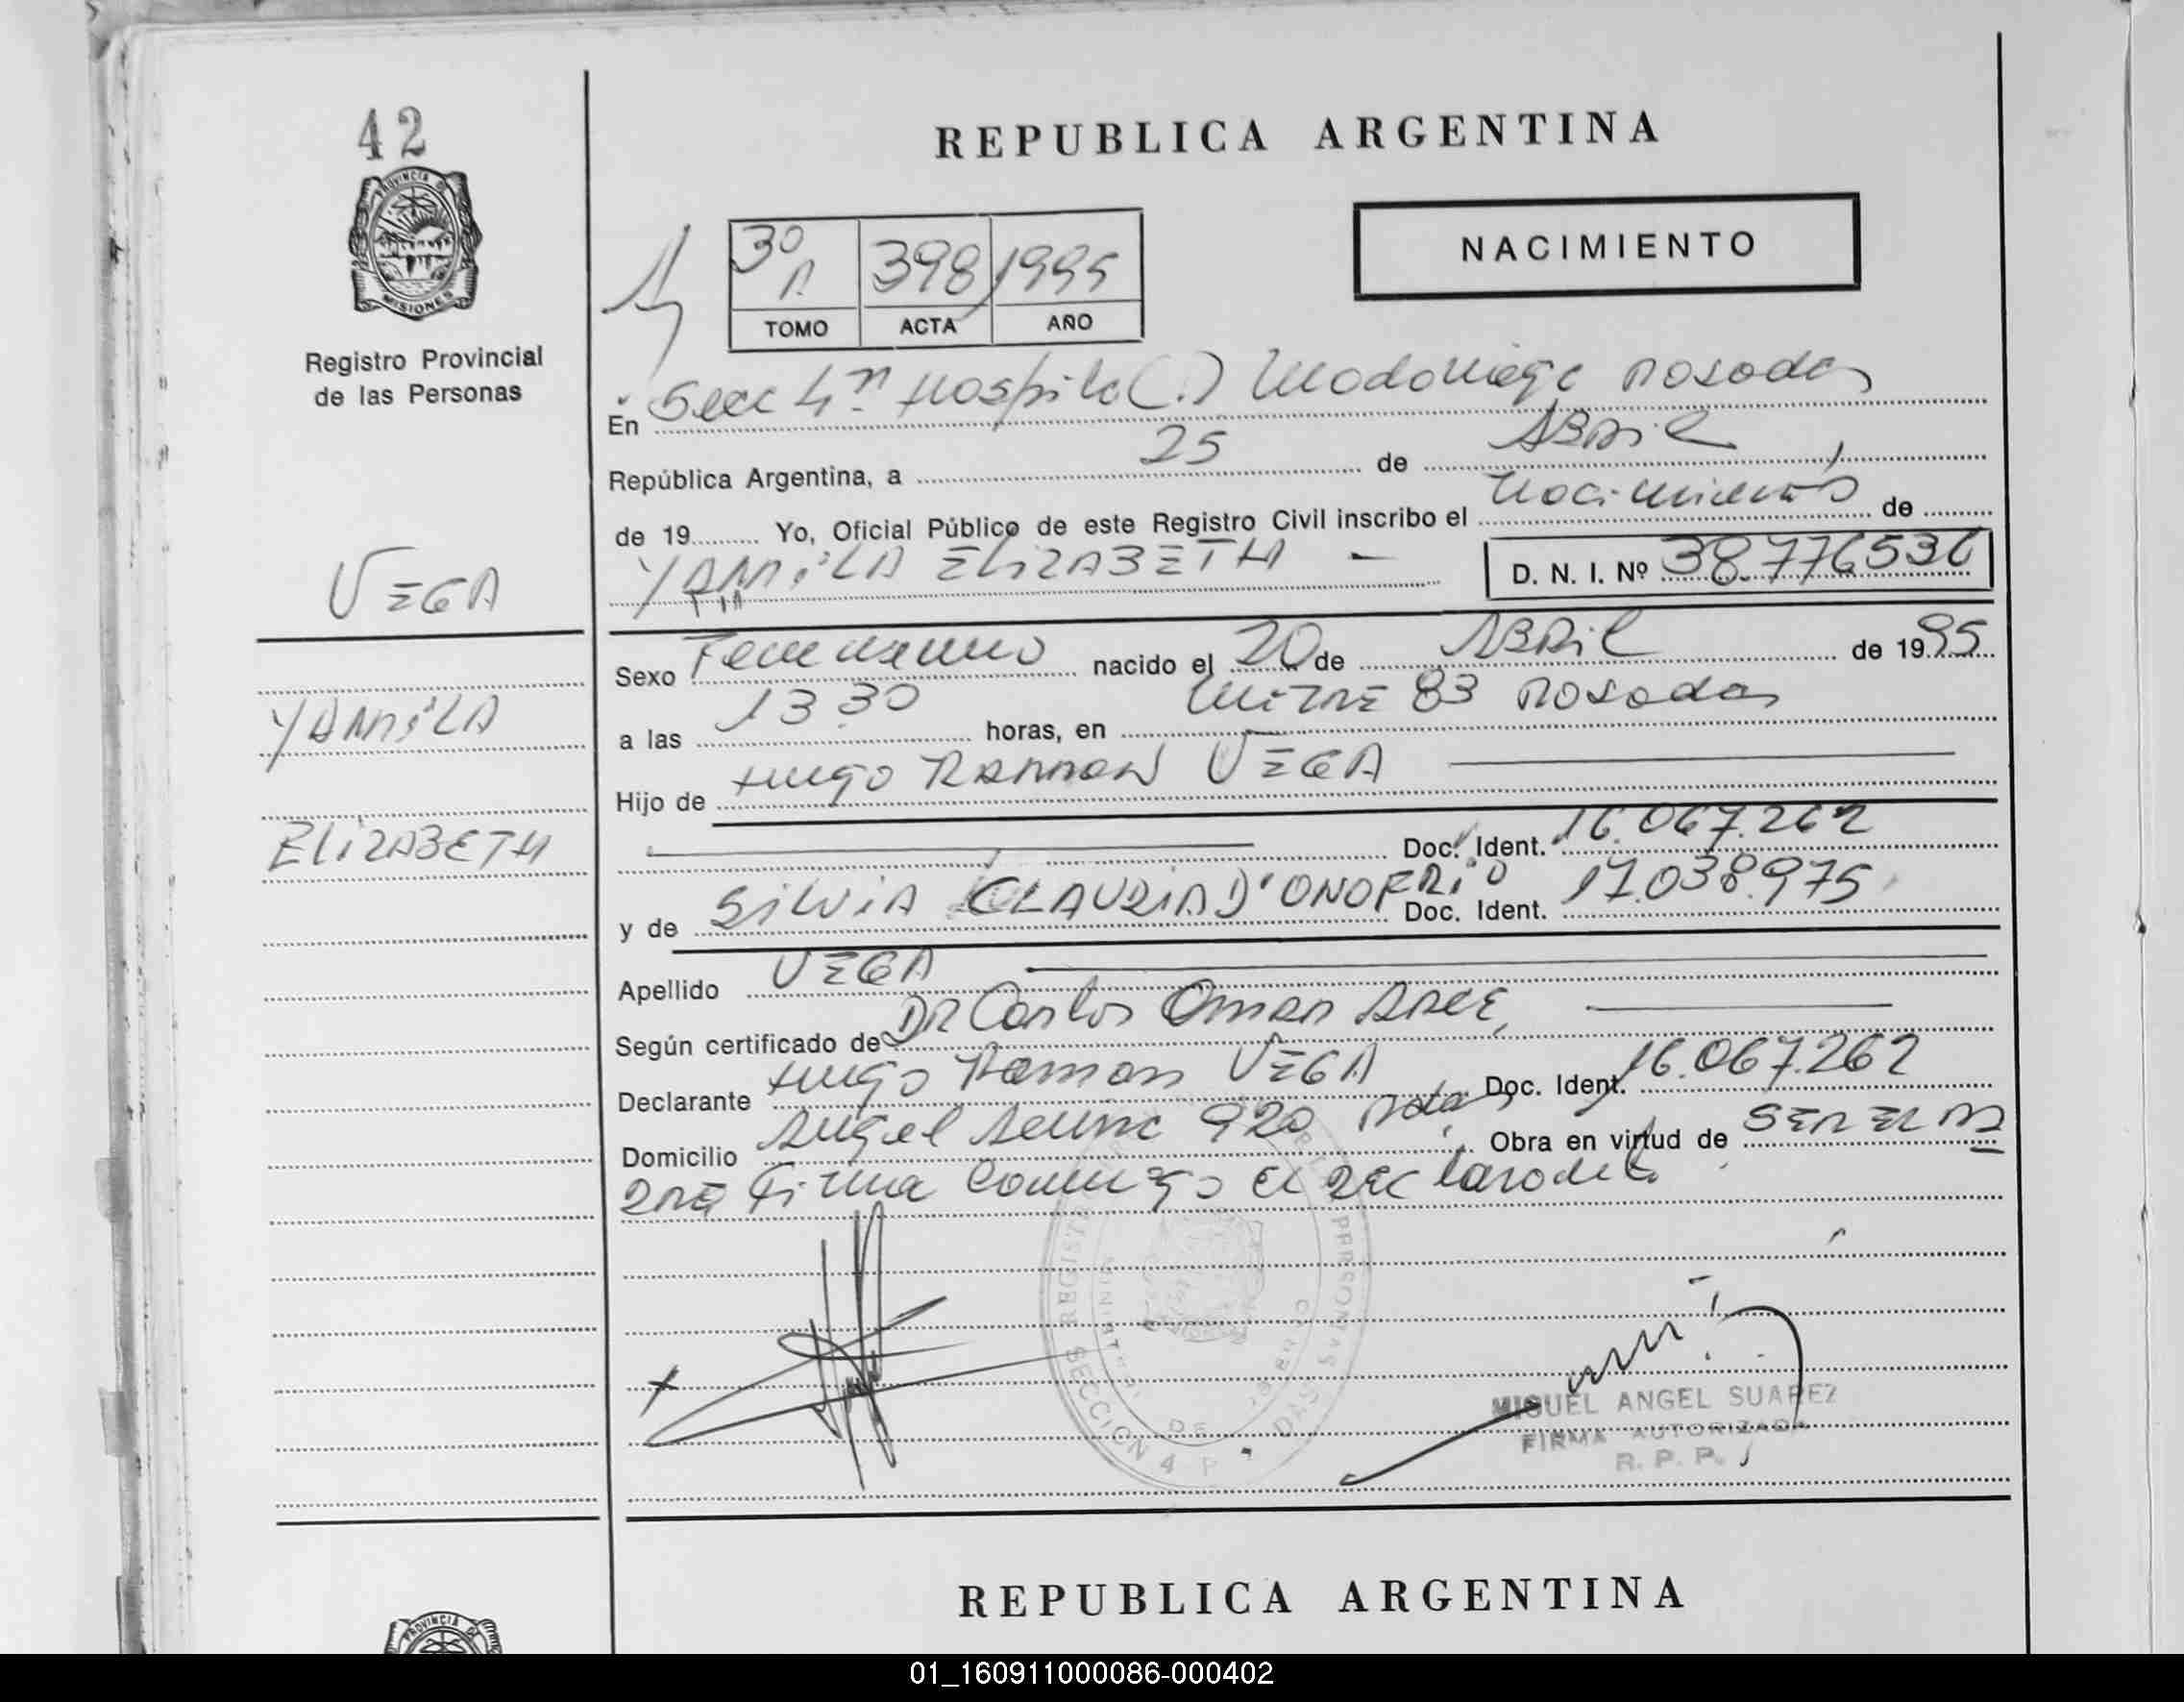 42
PROVINCIA DE
MISIONES
Registro Provincial
de las Personas
REPUBLICA ARGENTINA
NACIMIENTO
3º A 398 1995
TOMO ACTA AÑO
En Secc 4ª Hospital Madariaga Posadas
República Argentina, a 25 de ABRIL
de 19 Yo, Oficial Público de este Registro Civil inscribo el nacimiento de
YAMiLA ELIZABETH — D. N. I. Nº 38.776536
VEGA
YAMiLA
ELIZABETH
Sexo Femenino nacido el 20 de ABRiL de 1995
a las 13 30 horas, en MiTRE 83 Posadas
Hijo de Hugo RAMON VEGA
Doc. Ident. 16.067.262
y de SiLViA CLAUDiA D'ONOFRiO Doc. Ident. 17.038.975
Apellido VEGA
Según certificado de DR Carlos OMAR ARCE,
Declarante Hugo Ramon VEGA Doc. Ident. 16.067.262
Domicilio Angel 920 Pdas Obra en virtud de SER EL PA
DRE Firma conmigo el declarante
MIGUEL ANGEL SUAREZ
FIRMA AUTORIZADA
R. P. P.
SECCION 4
REPUBLICA ARGENTINA
PROVINCIA
01_160911000086-000402